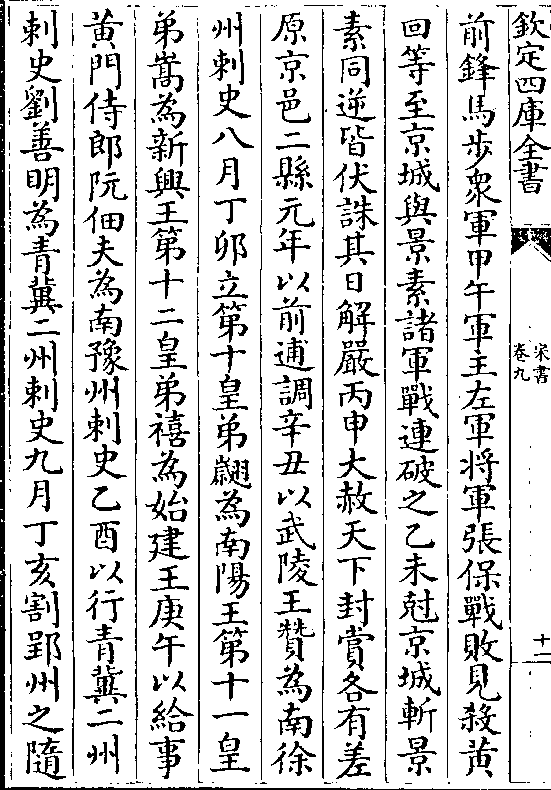 欽定四庫全書
宋書
卷九
十二
前鋒馬步衆軍甲午軍主左軍将軍張保戰敗見殺黄
回等至京城與景素諸軍戰連破之乙未尅京城斬景
素同逆皆伏誅其日解嚴丙申大赦天下封賞各有差
原京邑二縣元年以前逋調辛丑以武陵王贊為南徐
州刺史八月丁卯立第十皇弟翽為南陽王第十一皇
弟嵩為新興王第十二皇弟禧為始建王庚午以給事
黄門侍郎阮佃夫為南豫州刺史乙酉以行青冀二州
刺史劉善明為青冀二州刺史九月丁亥割郢州之隨